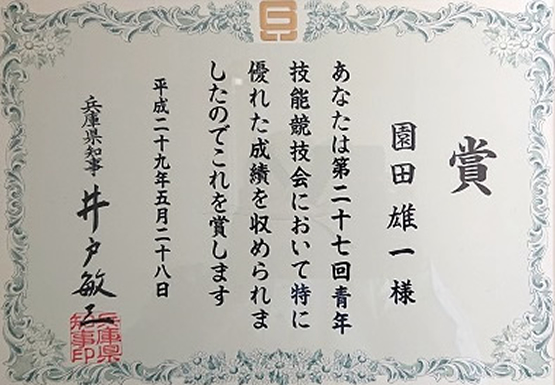 賞
園田雄一様
あなたは第二十七回青年
技能競技会において特に
優れた成績を収められま
したのでこれを賞します
平成二十九年五月二十八日
兵庫県知事 井戸敏三
兵庫県
知事印